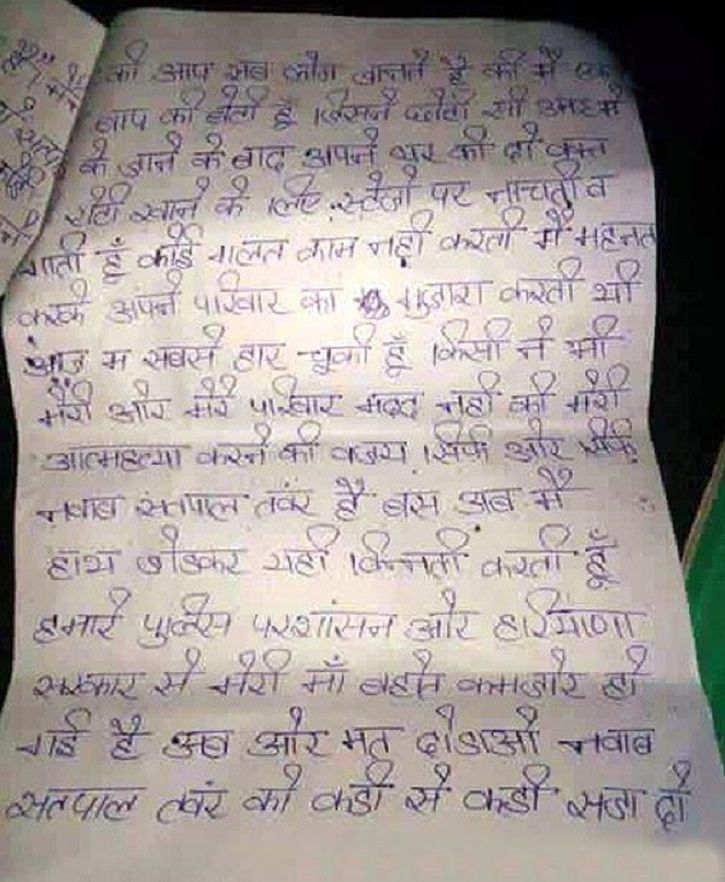 की आप सब लोग जानते है की मैं एक
बाप की बेटी हूँ जिसने छोटी सी उमर मे
के जाने के बाद अपने घर की दो वक्त
रोटी खाने के लिए स्टेजो पर नाचती व
गाती हूँ कोई गलत काम नही करती मैं महनत
करके अपने परिवार का गुजारा करती थी
आज म सबसे हार चुकी हूँ किसी ने भी
मेरी और मेरे परिवार मदद नही की मेरी
आत्महत्या करने की वजय सिर्फ और सिर्फ
नवाब सतपाल तवंर है बस अब मैं
हाथ जोडकर यही विनती करती हूँ
हमारे पुलिस परशांसन और हरियाणा
सरकार से मेरी माँ बहोत कमजोर हो
गई है अब और मत दोडाओ नवाब
सतपाल तवंर को कडी से कडी सजा दो